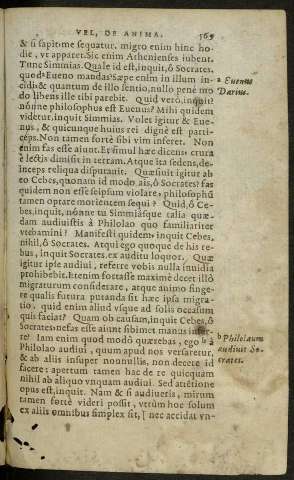 VEL, DE ANIMA. 565
& si sapit me sequatur. migro enim hinc ho-
die, vt apparet. Sic enim Athenienses iubent.
Tunc Simmias. Quale id est, inquit, ô Socrates,
quod Eueno mandas? Sæpe enim in illum in-
cidi: & quantum de illo sentio, nullo penè mo
do libens ille tibi parebit. Quid verò, inquit?
nónne philosophus est Euenus? Mihi quidem
videtur, inquit Simmias. Volet igitur & Eue-
nus, & quicunque huius rei dignè est parti-
ceps. Non tamen fortè sibi vim inferet. Non
enim fas esse aiunt. Et simul hæc dicens crura
è lectis dimisit in terram. Atque ita sedens, de-
inceps reliqua disputauit. Quæsiuit igitur ab
eo Cebes, quonam id modo ais, ô Socrates? fas
quidem non esse seipsum violare, philosophũ
tamen optare morientem sequi? Quid, ô Ce-
bes, inquit, nónne tu Simmiásque talia quæ-
dam audiuistis à Philolao quo familiariter
vtebamini? Manifesti quidem, inquit Cebes,
nihil, ô Socrates. Atqui ego quoque de his re-
bus, inquit Socrates, ex auditu loquor. Quæ
igitur ipse audiui, referre vobis nulla inuidia
prohibebit. Etenim fortasse maximè decet illũ
migraturum considerare, atque animo finge-
re qualis futura putanda sit hæc ipsa migra-
tio. quid enim aliud vsque ad solis occasum
quis faciat? Quam ob causam, inquit Cebes, ô
Socrates nefas esse aiunt sibimet manus infer-
re? Iam enim quod modò quærebas, ego b à
Philolao audiui, quum apud nos versaretur,
& ab aliis insuper nonnullis, non decere id
facere: apertum tamen hac de re quicquam
nihil ab aliquo vnquam audiui. Sed attētione
opus est, inquit. Nam & si audiueris, mirum
tamen fortè videri possit, vtrùm hoc solum
ex aliis omnibus simplex sit, [ nec accidat vn-
a Euenus
Darius.
b Philolaum
audiuit So-
crates.